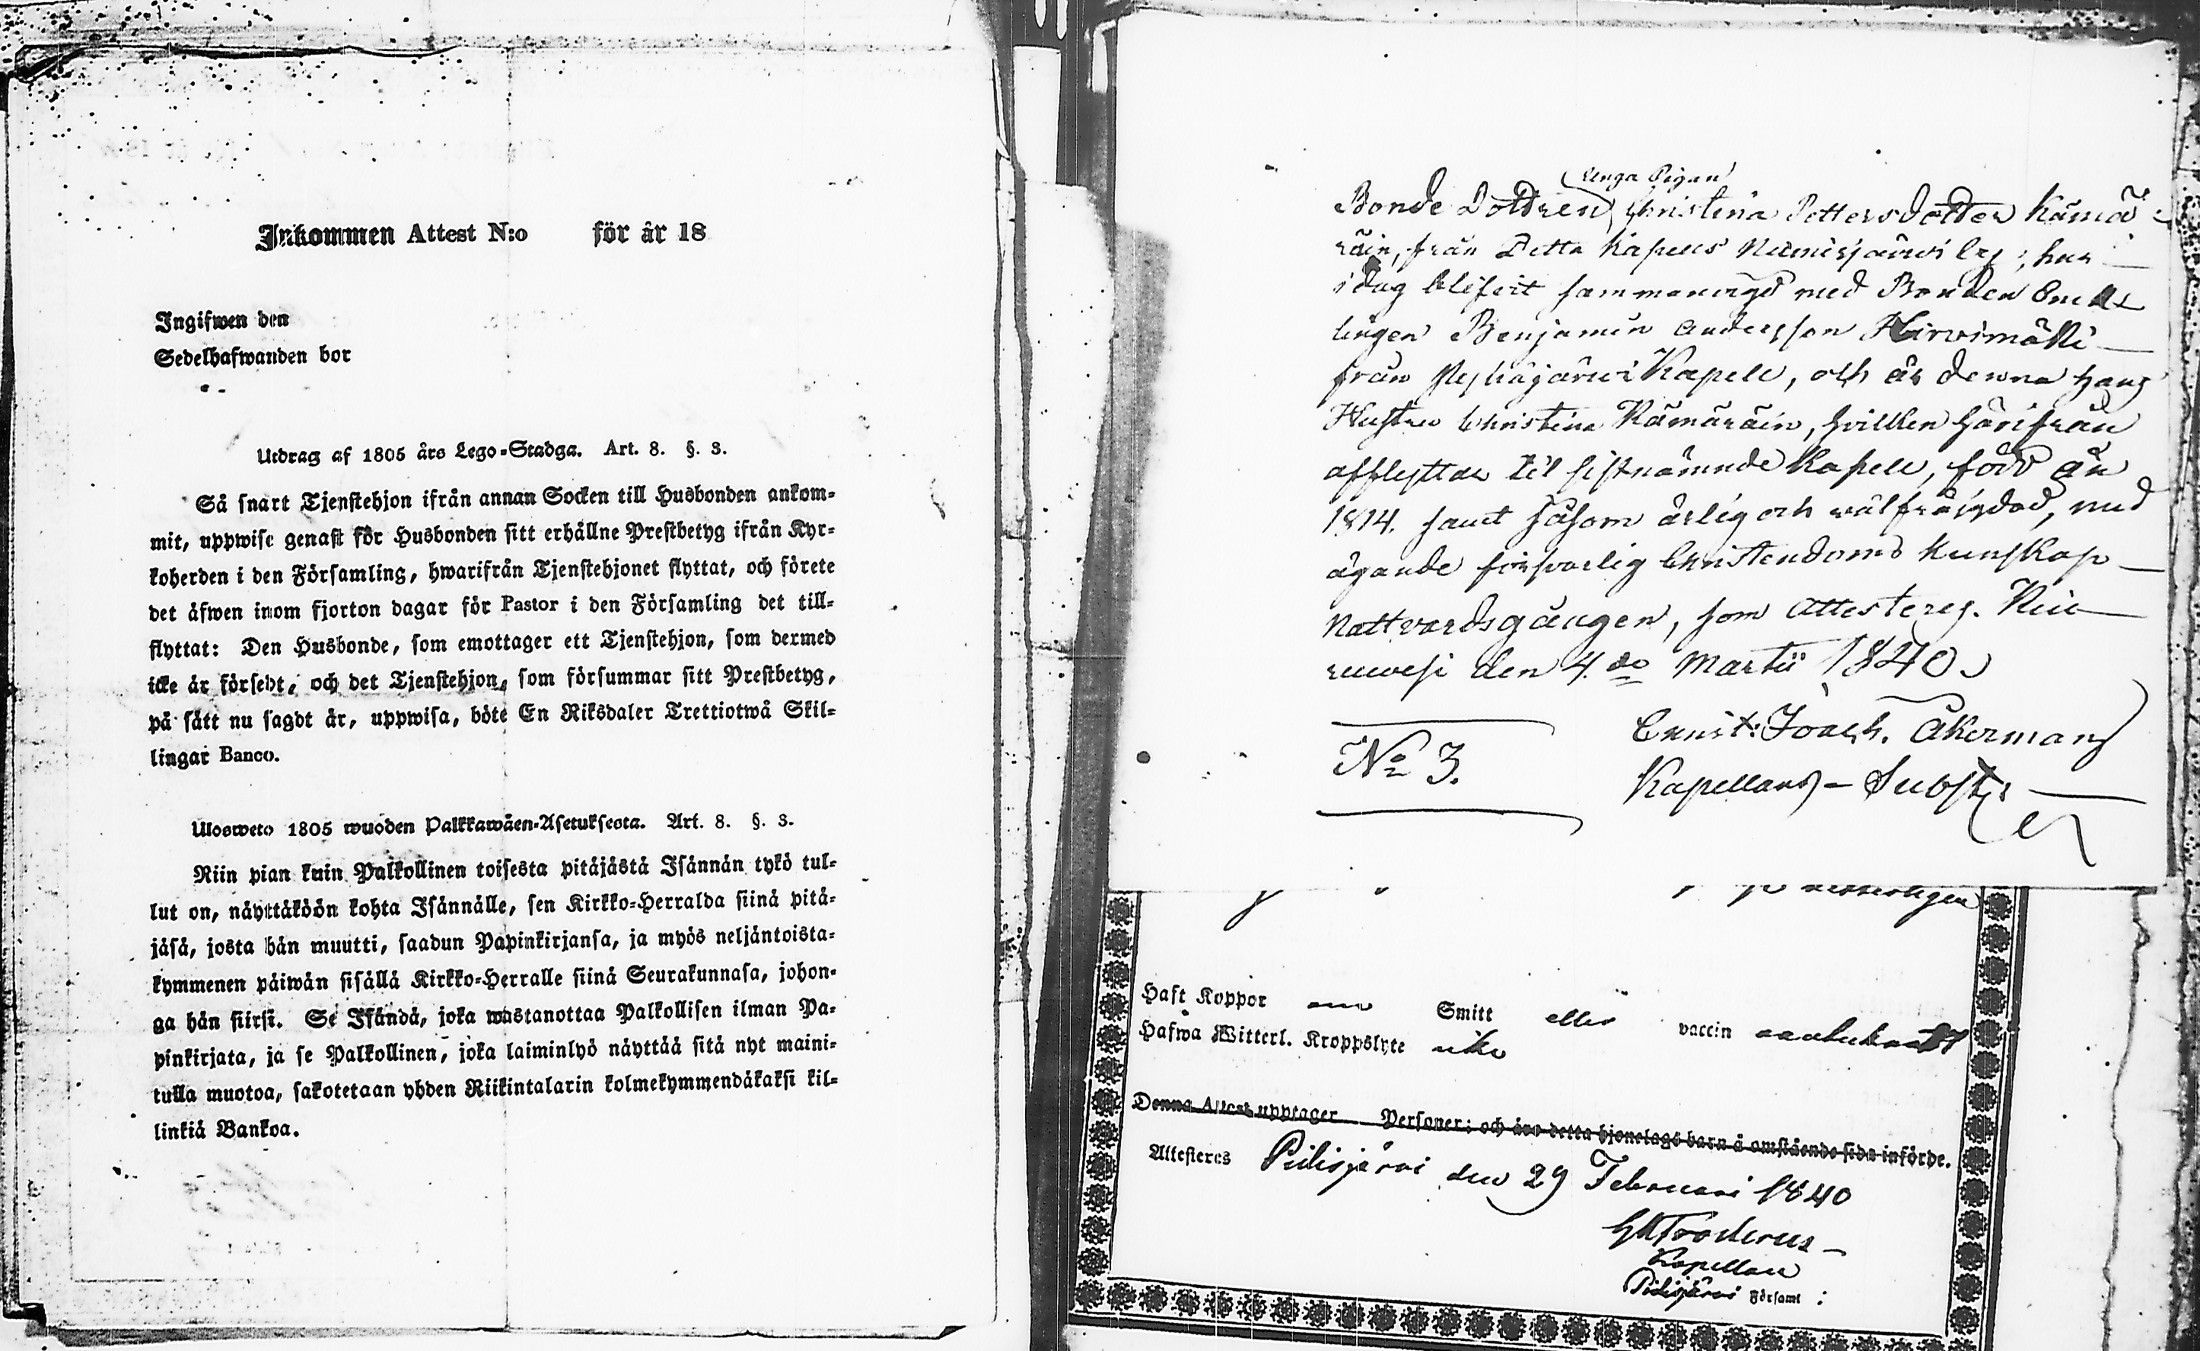 Inkommen Attest N:o för år 18
Ingifwen den
Sedelhafwanden bor
Utdrag af 1805 års Lego-Stadga. Art. 8. §. 3.
Så snart Tjenstehjon ifrån annan Socken till Husbonden ankom-
mit, uppwise genast för Husbonden sitt erhållne Prestbetyg ifrån Kyr-
koherden i den Församling, hwarifrån Tjenstehjonet flyttat, och förete
det åfwen inom fjorton dagar för Pastor i den Församling det till-
flyttat: Den Husbonde, som emottager ett Tjenstehjon, som dermed
icke är försedt, och det Tjenstehjon, som försummar sitt Prestbetyg,
på sätt nu sagdt är, uppwisa, böte En Riksdaler Trettiotwå Skil-
lingar Banco.
Ulosweto 1805 wuoden Palkkawäen-Asetuksesta. Art. 8. §. 3.
Niin pian kuin Palkollinen toisesta pitäjästä Isännän tykö tul-
lut on, näyttäköön kohta Isännälle, sen Kirkko-Herralda siinä pitä-
jäsä, josta hän muutti, saadun Papinkirjansa, ja myös neljäntoista-
kymmenen päiwän sisällä Kirkko-Herralle siinä Seurakunnasa, johon-
ga hän siirsi. Se Isändä, joka wastanottaa Palkollisen ilman Pa-
pinkirjata, ja se Palkollinen, joka laiminlyö näyttää sitä nyt maini-
tulla muotoa, sakotetaan yhden Riikintalarin kolmekymmendäkaksi kil-
linkiä Bankoa.
unga Pigan
Bonde Dottren Christina Pettersdotter Kämä-
räin, från Detta Kapells Nurmisjärvi by, har
i dag blifvit sammanvigd med Bonden
Benjamin Andersson Hirvimäki
från Kapell, och är denna hans
Hustru Christina Kämäräin, hvilken härifrån
afflyttar til sistnämnde Kapell, född år
1814. samt såsom ärlig och välfräjdad, med
ägande försvarlig Christendoms Kunskap
Nattvardsgången, som attesteras. Kiu-
ruvesi den 4.de Martii 1840
Ernst: Joach. Åkerman
No 3.
Kapellans-Subst:
Haft Koppor Smitt eller vaccin
Hafwa Witterl. Kroppslyte icke
Denna Attest upptager Personer; och äro detta hjonelags barn å omstående sida införde.
Attesteras Pidisjärvi den 29 Februari 1840
Kapellan
Pidisjärvi Församl: